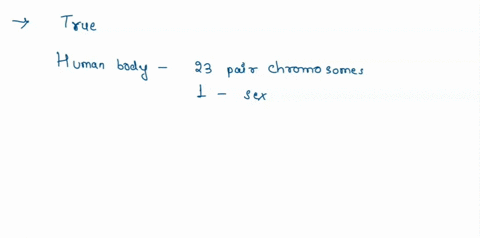 → True
Human body - 23 pair chromosomes
1 - sex